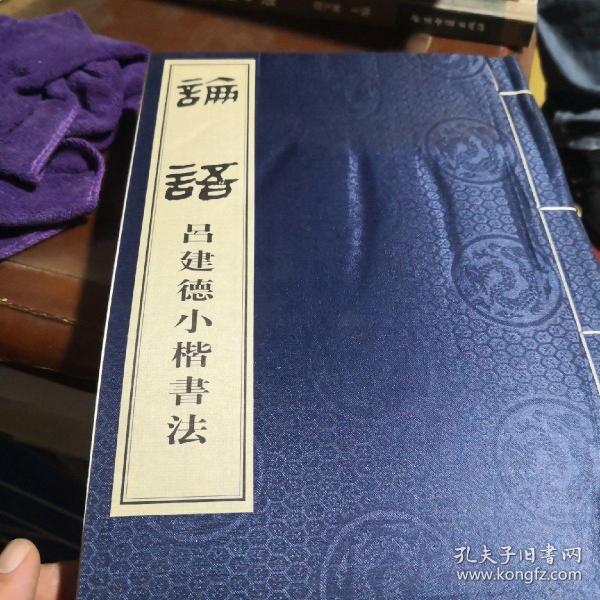 論語
呂建德小楷書法
孔夫子旧書网
www.kongfz.com